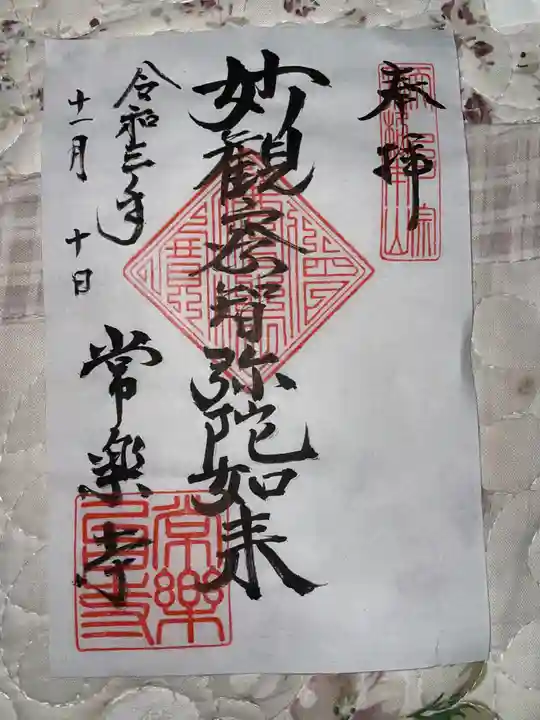 奉拝
妙観察智弥陀如来
令和三年
十一月 十日
常楽寺
常樂